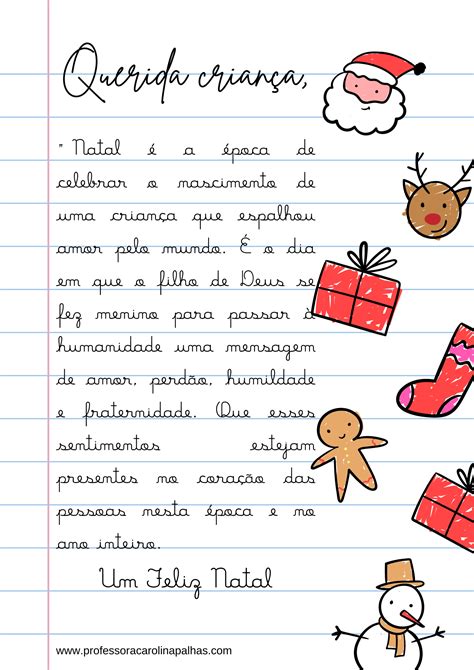 Querida criança,
" Natal é a época de
celebrar o nascimento de
uma criança que espalhou
amor pelo mundo. É o dia
em que o filho de Deus se
fez menino para passar à
humanidade uma mensagem
de amor, perdão, humildade
e fraternidade. Que esses
sentimentos estejam
presentes no coração das
pessoas nesta época e no
ano inteiro.
Um Feliz Natal
www.professoracarolinapalhas.com